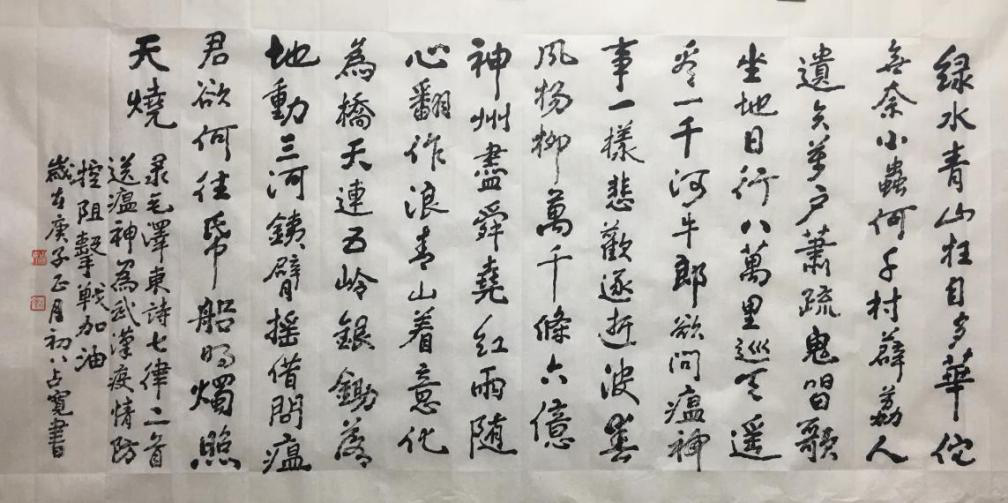 绿水青山枉自多華佗
無奈小蟲何千村薜荔人
遺矢萬户蕭疏鬼唱歌
坐地日行八萬里巡天遥
看一千河牛郎欲問瘟神
事一樣悲歡逐逝波春
風楊柳萬千條六億
神州盡舜堯紅雨随
心翻作浪青山着意化
為橋天連五岭銀鋤落
地動三河銕臂摇借問瘟
君欲何往帋船明燭照
天燒
录毛澤東詩七律二首
送瘟神為武漢疫情防
控阻擊戰加油
歲在庚子正月初八占寬書